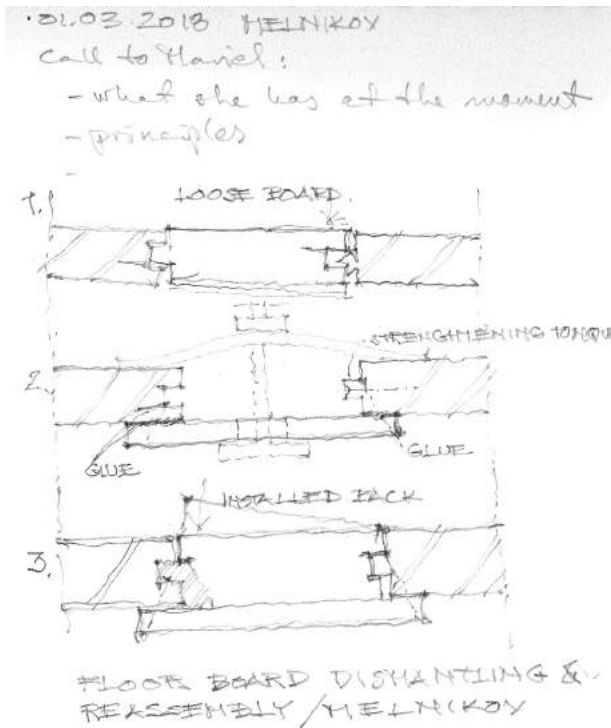 ·01.03.2018 MELNIKOV
Call to :
- what she has at the moment
- principles
-
1.
LOOSE BOARD.
STRENGTHENING TONGUE
2.
GLUE
GLUE
INSTALLED BACK
3.
FLOOR BOARD DISMANTLING &
REASSEMBLY / MELNIKOV